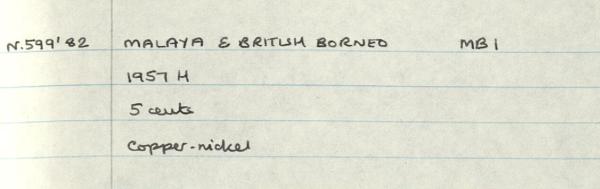 N.599'82 MALAYA & BRITISH BORNEO MB1
1957 H
5 cents
Copper-nickel